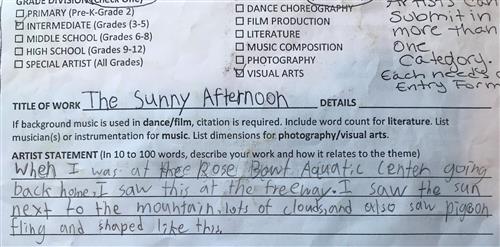 GRADE DIVISION (Check One)
PRIMARY (Pre-K-Grade 2)
INTERMEDIATE (Grades 3-5)
MIDDLE SCHOOL (Grades 6-8)
HIGH SCHOOL (Grades 9-12)
SPECIAL ARTIST (All Grades)
DANCE CHOREOGRAPHY
FILM PRODUCTION
LITERATURE
MUSIC COMPOSITION
PHOTOGRAPHY
VISUAL ARTS
Artists can
submit in
more than
one
category.
Each needs
Entry Form
TITLE OF WORK The Sunny Afternoon DETAILS
If background music is used in dance/film, citation is required. Include word count for literature. List
musician(s) or instrumentation for music. List dimensions for photography/visual arts.
ARTIST STATEMENT (In 10 to 100 words, describe your work and how it relates to the theme)
When I was at Rose Bowl Aquatic Center going
back home, I saw this at the freeway. I saw the sun
next to the mountain, lots of clouds, and also saw pigeon
fling and shaped like this.